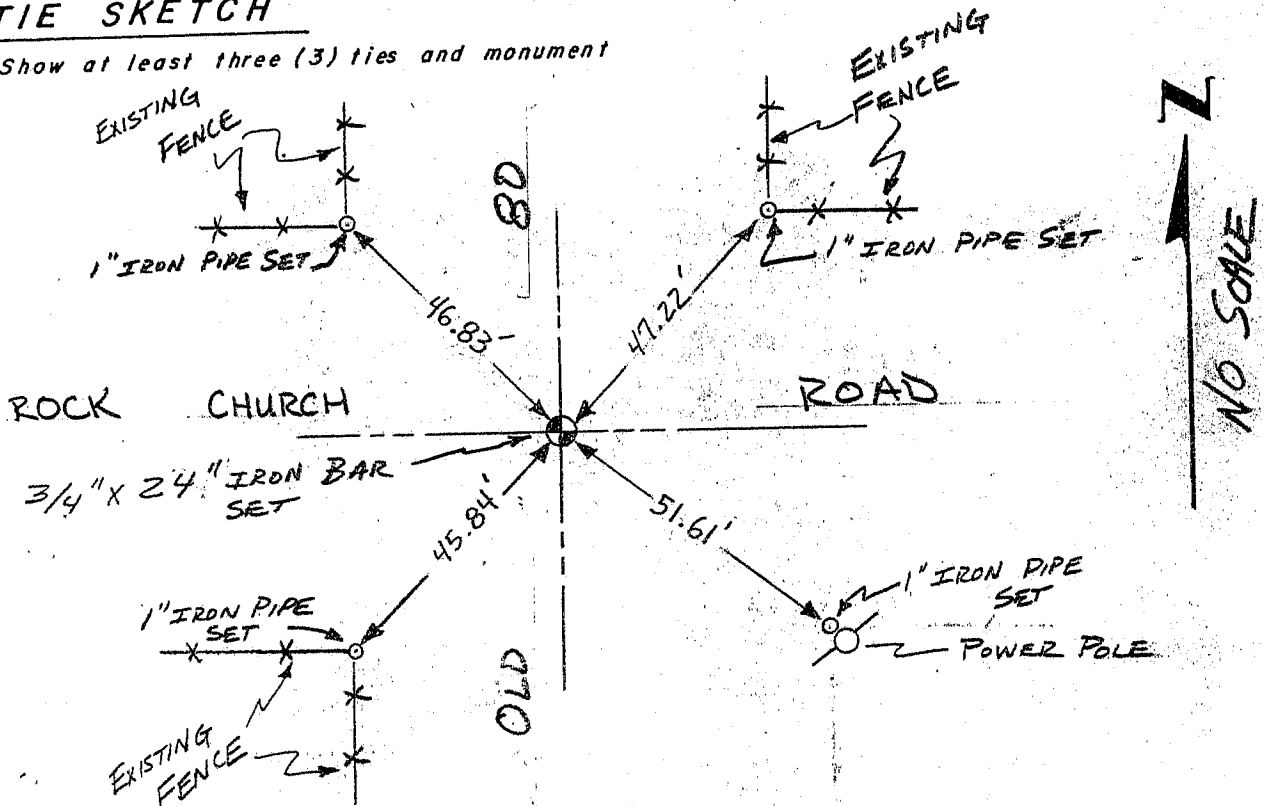 TIE SKETCH
Show at least three (3) ties and monument
EXISTING
FENCE
EXISTING
FENCE
N
80
1" IRON PIPE SET
1" IRON PIPE SET
NO SCALE
46.83'
47.22'
ROCK CHURCH ROAD
3/4" X 24" IRON BAR
SET
45.84'
51.61'
1" IRON PIPE
SET
1" IRON PIPE
SET
POWER POLE
OLD
EXISTING
FENCE